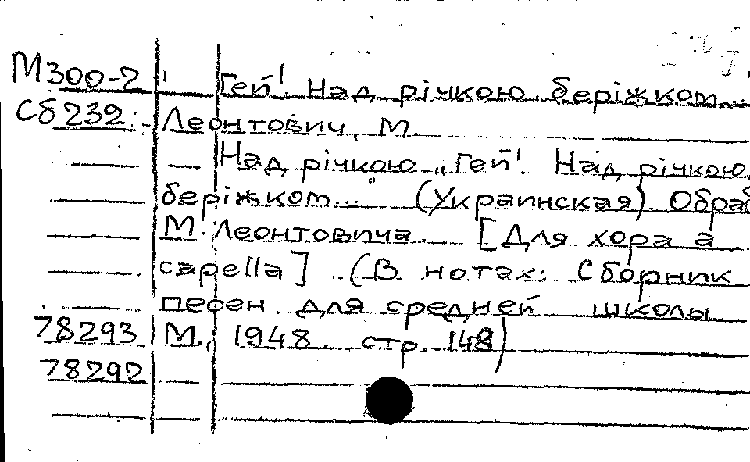 М300-2 Гей! Над річкою беріжком...
Сб232 Леонтович, М.
Над річкою „Гей! Над річкою,
беріжком..." (Украинская) Обраб
М. Леонтовича. [Для хора а
capella] (В нотах: Сборник
песен для средней школы
78293 М., 1948. стр. 148)
78292